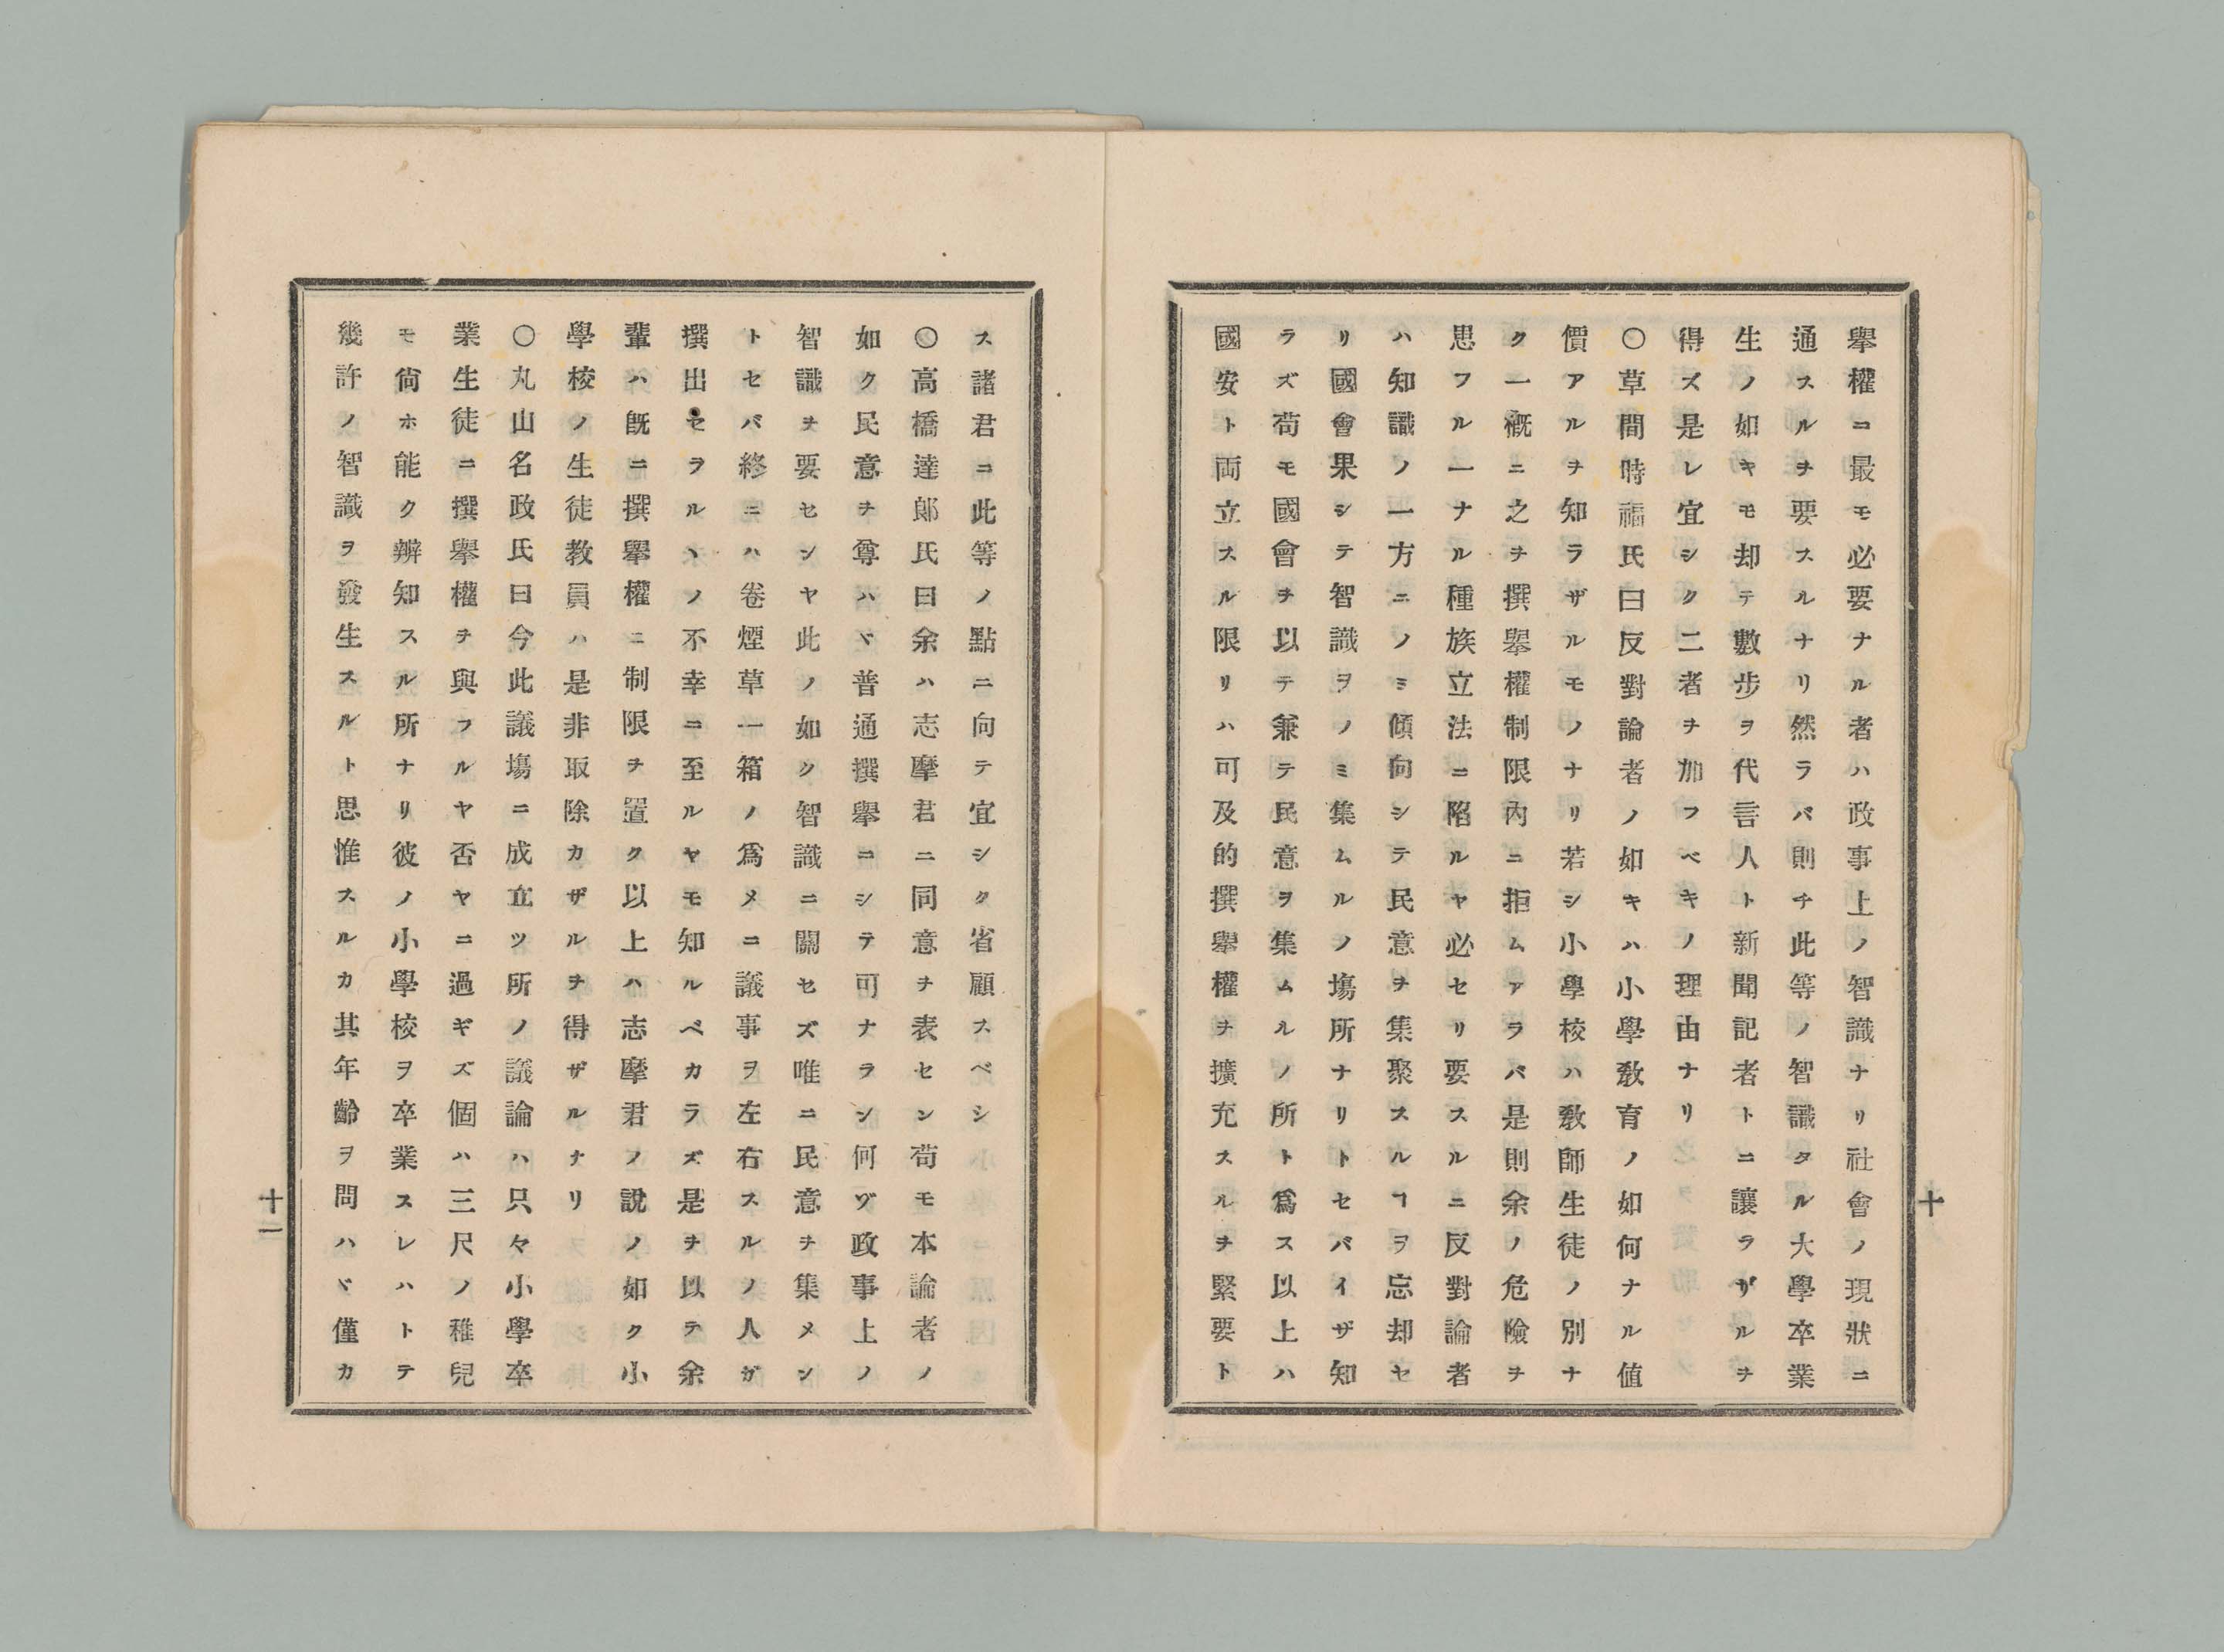 擧權ニ最モ必要ナル者ハ政事上ノ智識ナリ社會ノ現狀ニ
通スルヲ要スルナリ然ラバ則チ此等ノ智識タル大學卒業
生ノ如キモ却テ數步ヲ代言人ト新聞記者トニ讓ラザルヲ
得ズ是レ宜シク二者ヲ加フベキノ理由ナリ
〇草間時福氏曰反對論者ノ如キハ小學敎育ノ如何ナル値
價アルヲ知ラザルモノナリ若シ小學校ハ敎師生徒ノ別ナ
ク一概ニ之ヲ撰擧權制限內ニ拒ムアラバ是則余ノ危險ヲ
思フル一ナル種族立法ニ陷ルヤ必セリ要スルニ反對論者
ハ知識ノ一方ニノミ傾向シテ民意ヲ集聚スルヿヲ忘却セ
リ國會果シテ智識ヲノミ集ムルノ塲所ナリトセバイザ知
ラズ苟モ國會ヲ以テ兼テ民意ヲ集ムルノ所ト爲ス以上ハ
國安ト両立スル限リハ可及的撰擧權ヲ擴充スルヲ緊要ト
十
ス諸君ニ此等ノ點ニ向テ宜シク省顧スベシ
〇高橋達郞氏曰余ハ志摩君ニ同意ヲ表セン苟モ本論者ノ
如ク民意ヲ尊ハヾ普通撰擧ニシテ可ナラン何ゾ政事上ノ
智識ヲ要センヤ此ノ如ク智識ニ關セズ唯ニ民意ヲ集メン
トセバ終ニハ卷煙草一箱ノ爲メニ議事ヲ左右スルノ人ガ
撰出セラルヽノ不幸ニ至ルヤモ知ルベカラズ是ヲ以テ余
輩ハ旣ニ撰擧權ニ制限ヲ置ク以上ハ志摩君ノ說ノ如ク小
學校ノ生徒教員ハ是非取除カザルヲ得ザルナリ
〇丸山名政氏曰今此議塲ニ成立ツ所ノ議論ハ只々小學卒
業生徒ニ撰擧權ヲ與フルヤ否ヤニ過ギズ個ハ三尺ノ稚兒
モ尙ホ能ク辨知スル所ナリ彼ノ小學校ヲ卒業スレハトテ
幾許ノ智識ヲ發生スルト思惟スルカ其年齡ヲ問ハヾ僅カ
十一